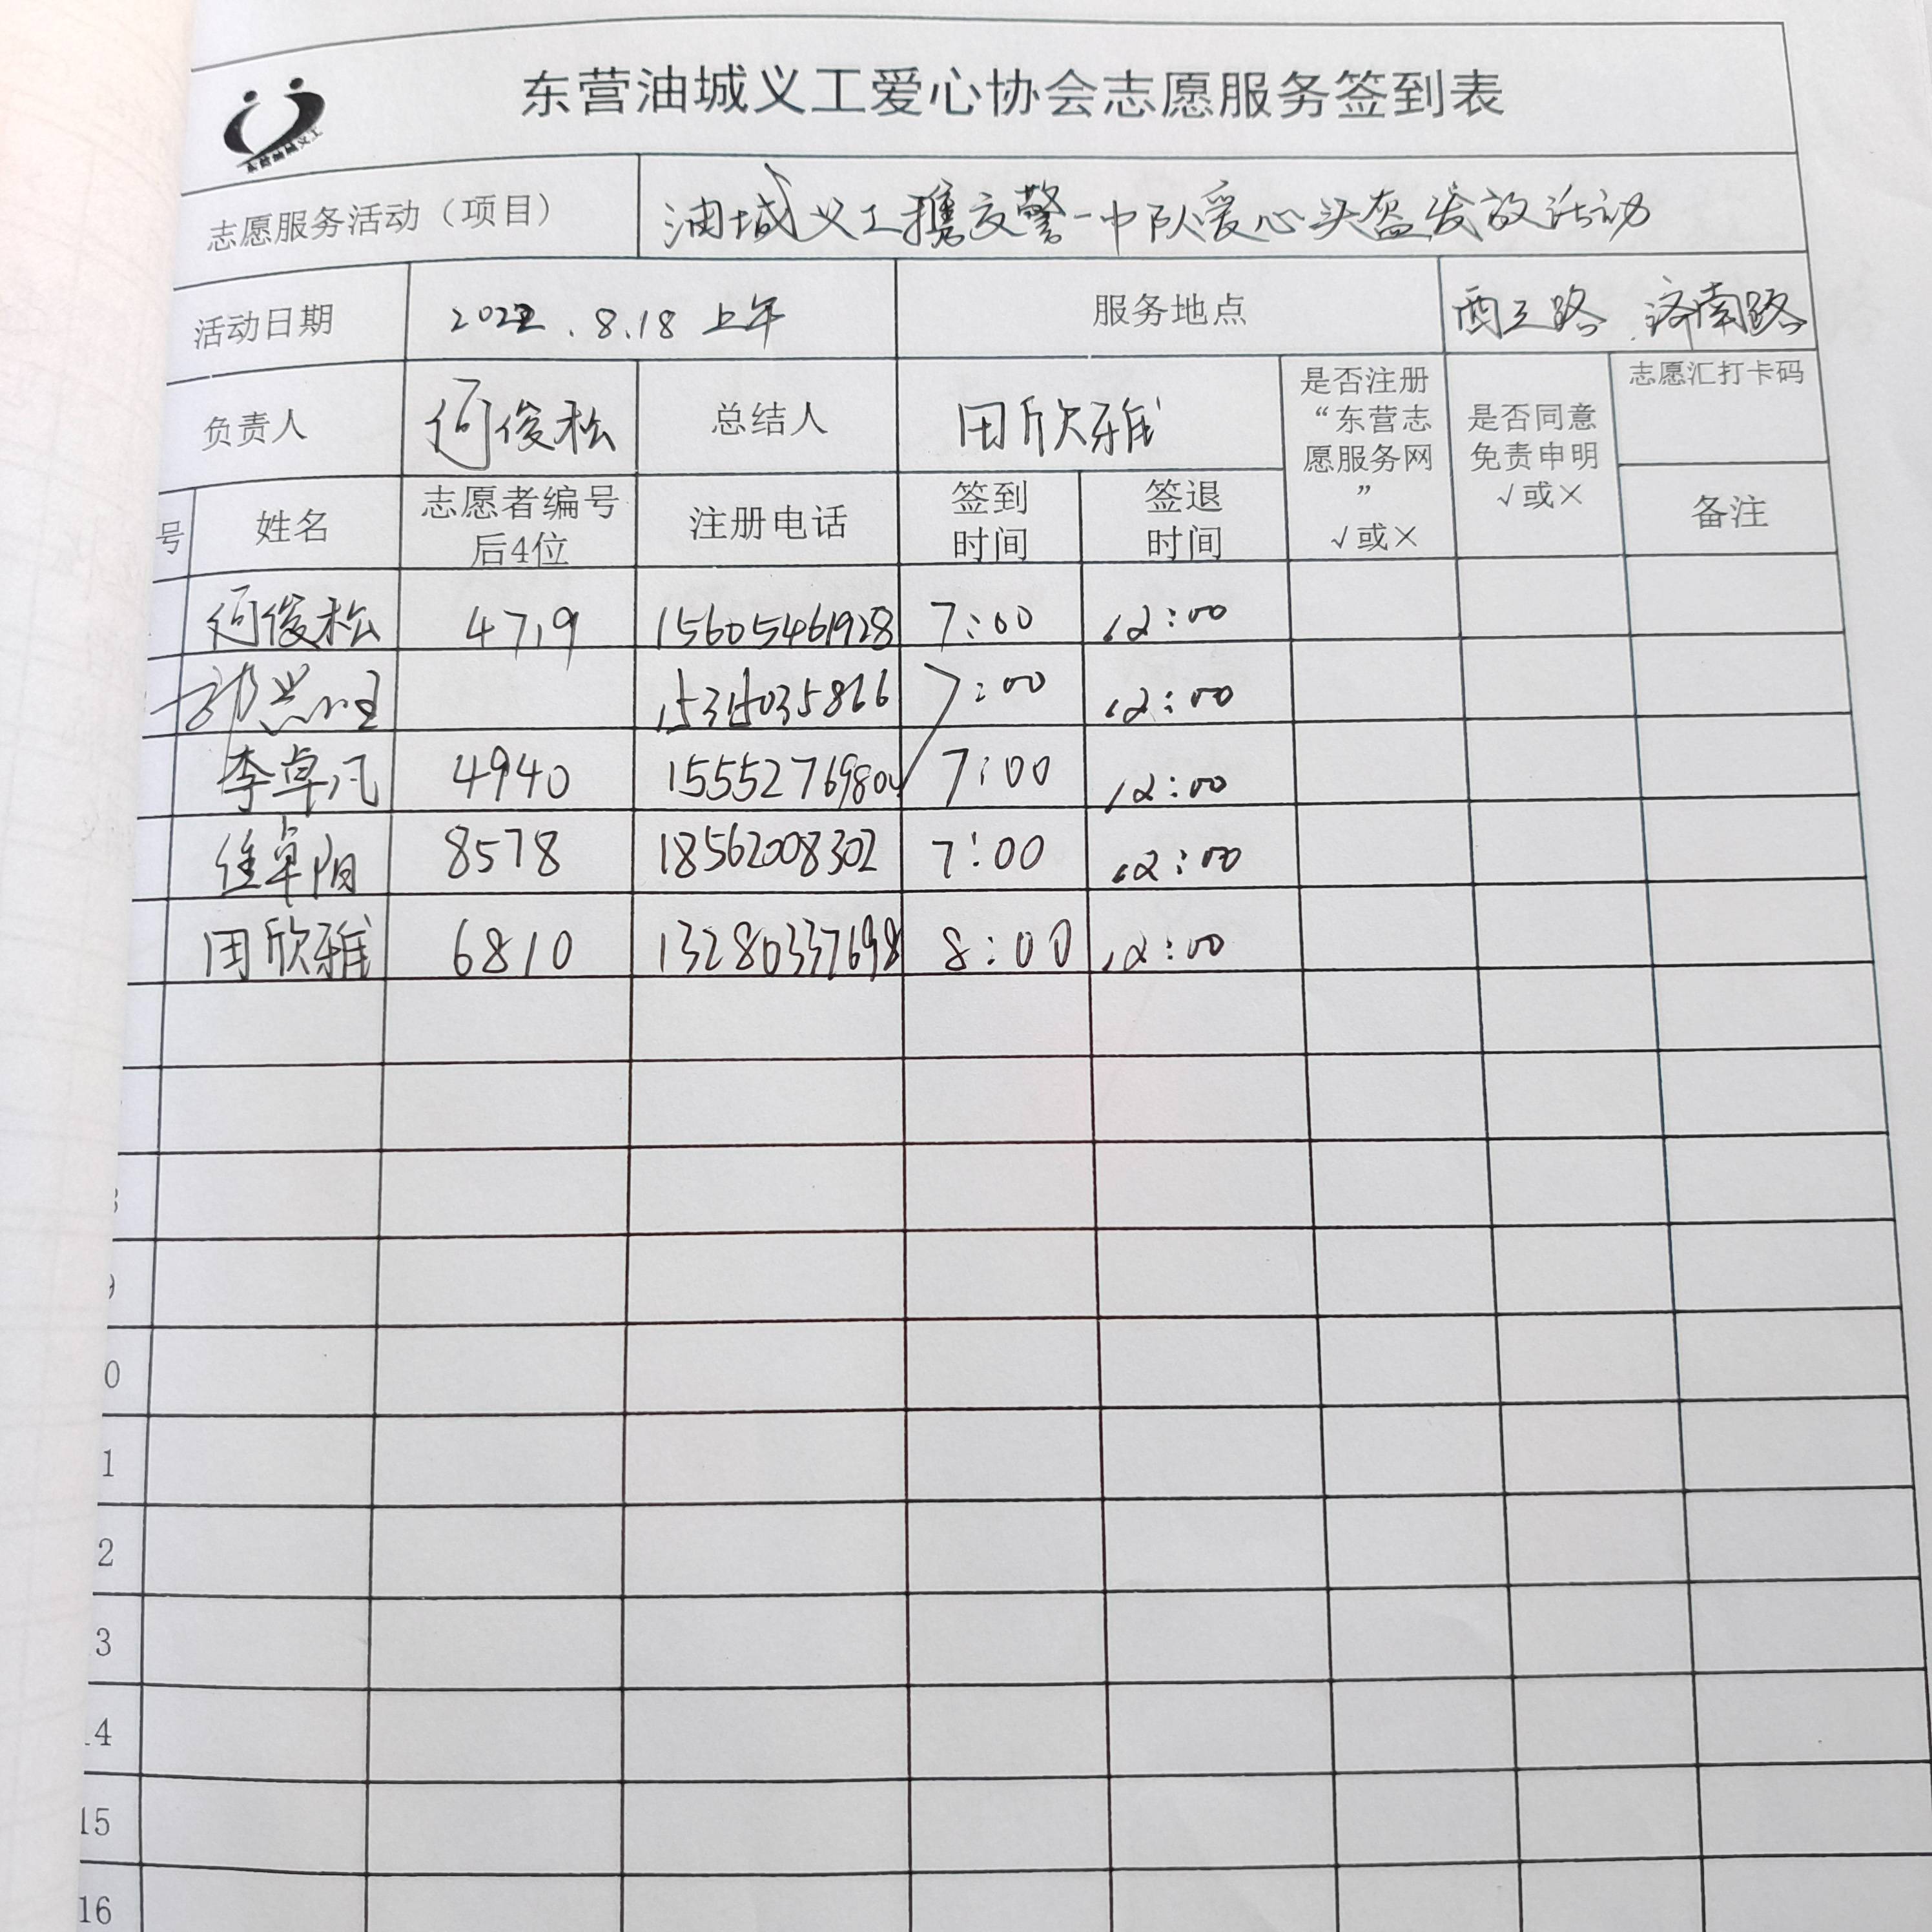 东营油城义工爱心协会志愿服务签到表
东营油城义工
志愿服务活动（项目） 油城义工携交警一中队爱心头盔发放活动
活动日期 2022.8.18 上午 服务地点 西三路 济南路
负责人 何俊松 总结人 田欣雅 是否注册“东营志愿服务网” √或× 是否同意免责申明 √或× 志愿汇打卡码
号 姓名 志愿者编号后4位 注册电话 签到时间 签退时间 备注
何俊松 4719 15605461928 7:00 12:00
7:00 12:00
李卓凡 4940 7:00 12:00
卓阳 8578 18562008302 7:00 12:00
田欣雅 6810 13280337698 8:00 12:00
0
1
2
3
4
15
16